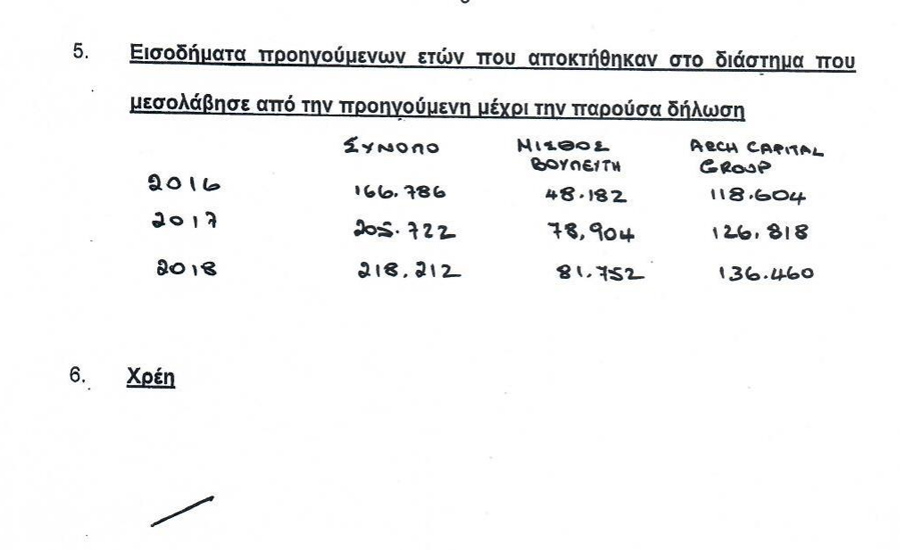 5. Εισοδήματα προηγούμενων ετών που αποκτήθηκαν στο διάστημα που
μεσολάβησε από την προηγούμενη μέχρι την παρούσα δήλωση
ΣΥΝΟΠΟ ΜΙΣΘΟΣ ΒΟΥΛΕΥΤΗ ARCH CAPITAL GROUP
2016 166.786 48.182 118.604
2017 205.722 78,904 126.818
2018 218.212 81.752 136.460
6. Χρέη